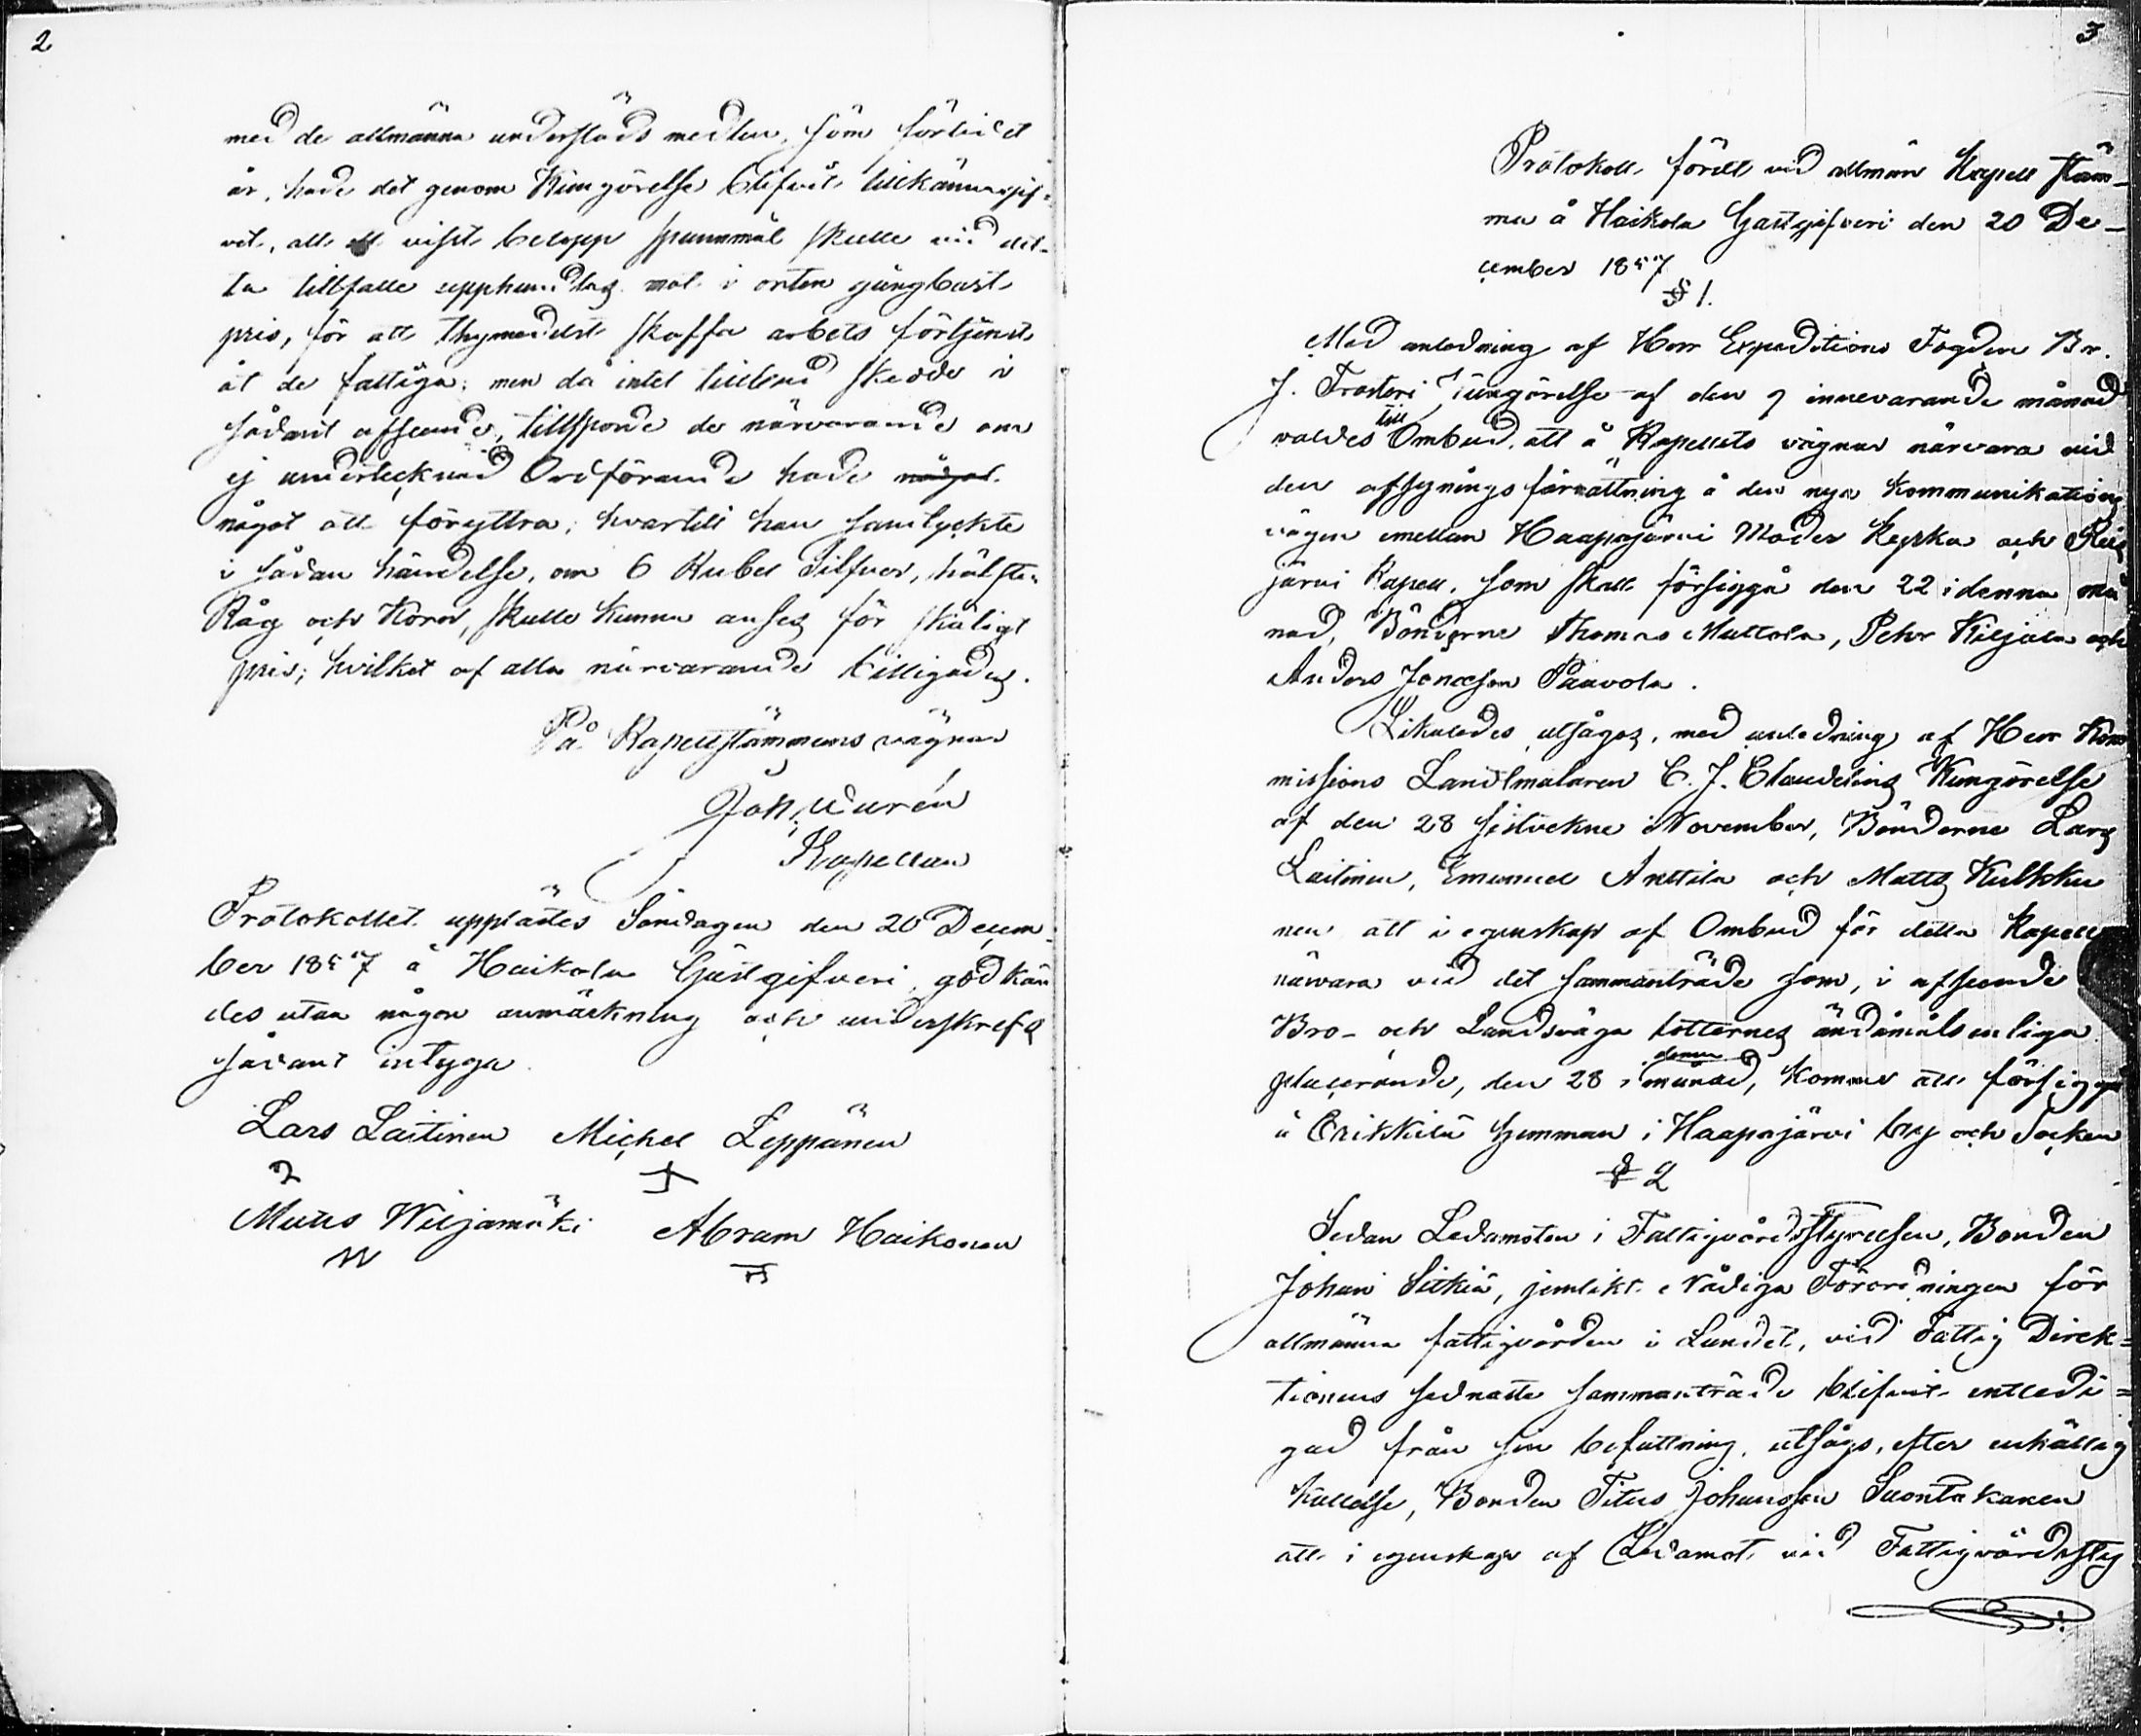 2
med de allmänna understöds medlen, som förlidet
år, hade det genom Kungörelse blifvit tillkännagif-
vit, att ett visst belopp spannmål skulle vid det-
ta tillfälle upphandlas mot i orten gångbart
pris, för att thymedelst skaffa arbets förtjenst
åt de fattiga; men då intet tillbud skedde i
sådant afseende, tillsporde de närvarande om
ej undertecknad Ordförande hade något
något att föryttra; hvartill han samtyckte
i sådan händelse, om 6 Rubel Silfver, hälften
Råg och Korn, skulle kunna anses för skäligt
pris; hvilket af alla närvarande billigades.
På Kapellstämmans vägnar
Joh. Durén
Kapellan
Protokollet upplästes Söndagen den 20 Decem-
ber 1857 å Haikola Gästgifveri, godkän
des utan någon anmärkning och underskrefs
sådant intyga
Lars Laitinen Michel Leppänen
Matts Wiljamäki Abram Haikonen
3
Protokoll, fördt vid allmän Kapell stäm-
ma å Haikola Gästgifveri den 20 De-
cember 1857
§ 1.
Med anledning af Herr Expeditions Fogden Br.
J. Frosteri Kungörelse af den 9 innevarande månad
valdes till Ombud, att å Kapellets vägnar närvara vid
den afsynings förrättning å den nya kommunikations
vägen emellan Haapajärvi Moder Kyrka och Reis
järvi Kapell, som skall försiggå den 22 i denna må
nad, Bönderne Thomas Muttola, Petter Kiljala och
Anders Jonasson Paavola.
Likaledes utsågos, med anledning af Herr Kom
missions Landtmätaren C. J. Claudelins Kungörelse
af den 28 sistvekne November, Bönderne Lars
Laitinen, Emanuel Anttila och Matts Kulkku
nen att i egenskap af Ombud för detta Kapell
närvara vid det sammanträde som, i afseende å
Bro- och Landsväga lotternes ändamålsenliga
placerande, den 28 i denna månad, kommer att försiggå
å Erikkilä hemman i Haapajärvi by och Socken
§ 2
Sedan Ledamoten i Fattigvårdsstyrelsen, Bonden
Johan Sitkiä, jemlikt Nådiga Förordningen för
allmänna fattigvården i Landet, vid Fattig Direk=
tionens sednaste sammanträde blifvit entledi=
gad från sin befattning, utsågs, efter enhällig
kallelse, Bonden Titus Johansson Suontakanen
att i egenskap af Ledamot vid Fattigvårdssty